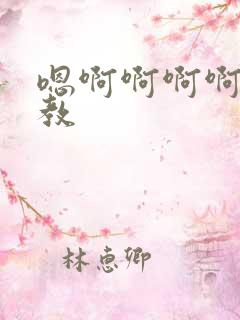 嗯啊啊啊啊
教
林惠卿